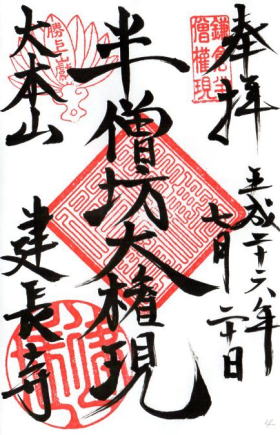 奉拝
鎌倉半
僧権現
平成二十六年
七月二十日
半僧坊大権現
勝上山嶽
大本山
建長寺